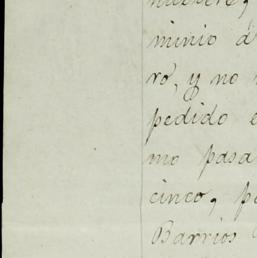 minio d
ro, y no
pedido e
mo pasa
cinco, p
Barrios